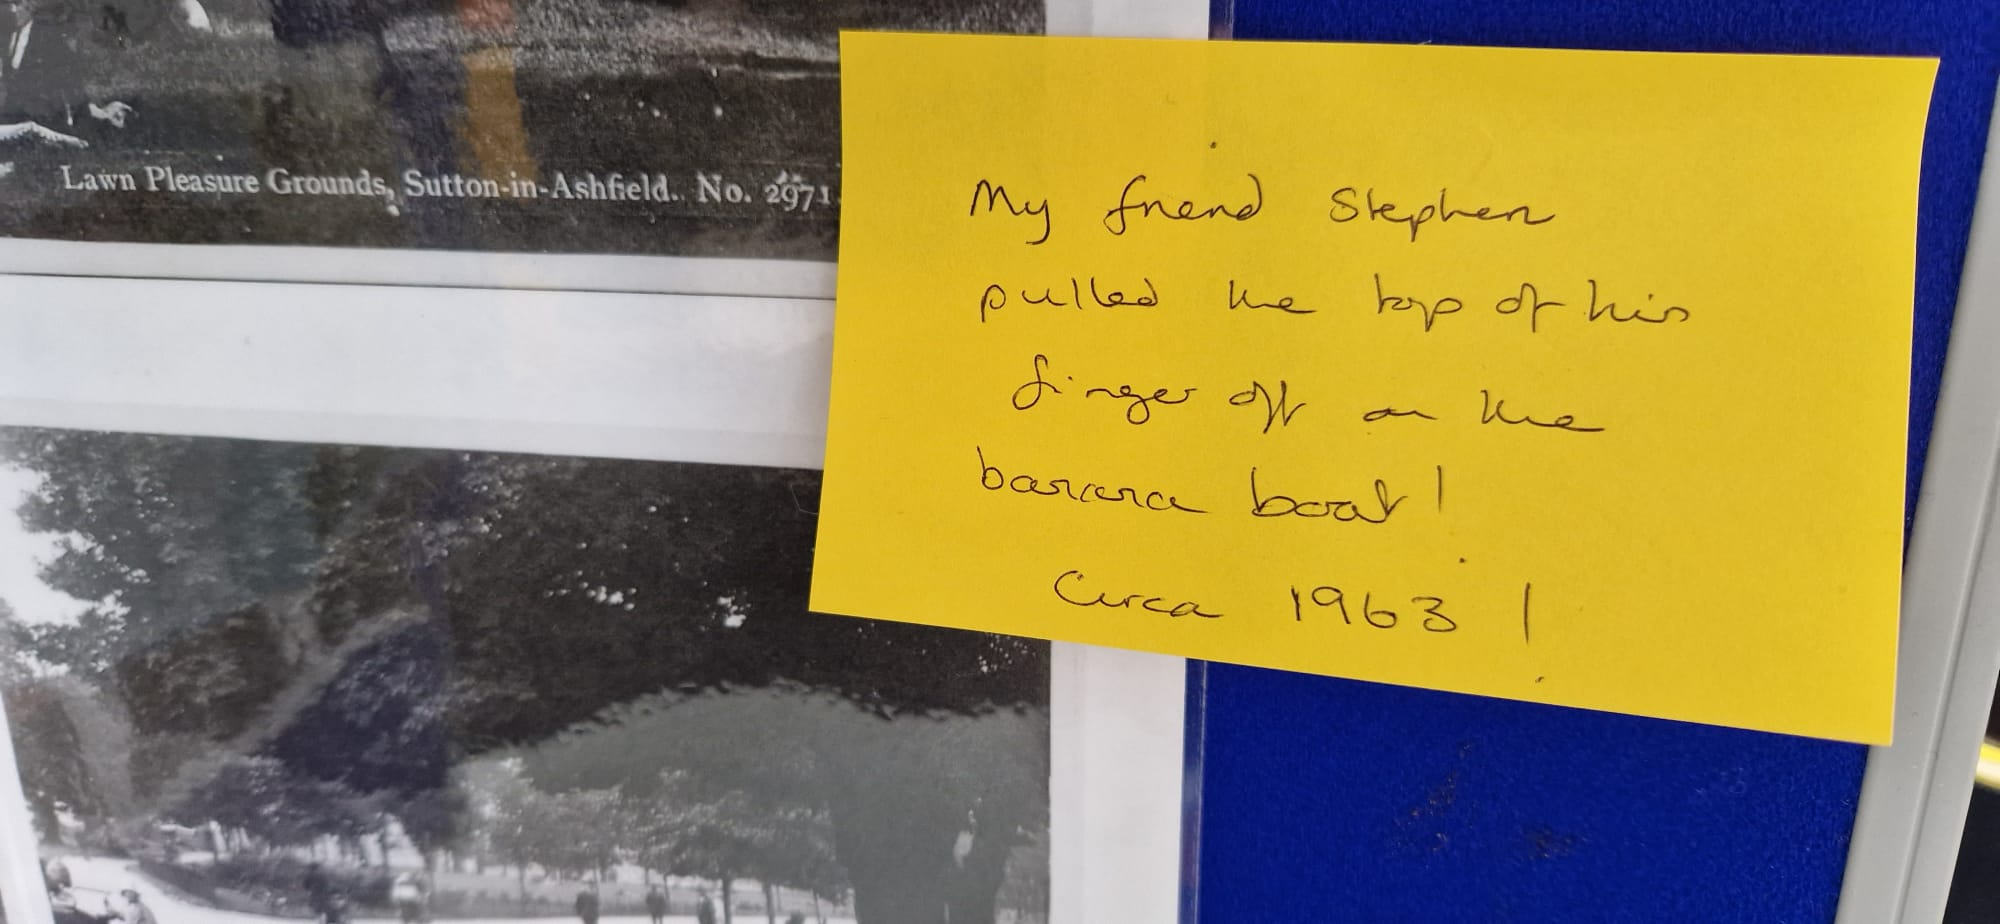 Lawn Pleasure Grounds, Sutton-in-Ashfield. No. 2971
My friend Stephen
pulled the top of his
finger off on the
banana boat!
Circa 1963!